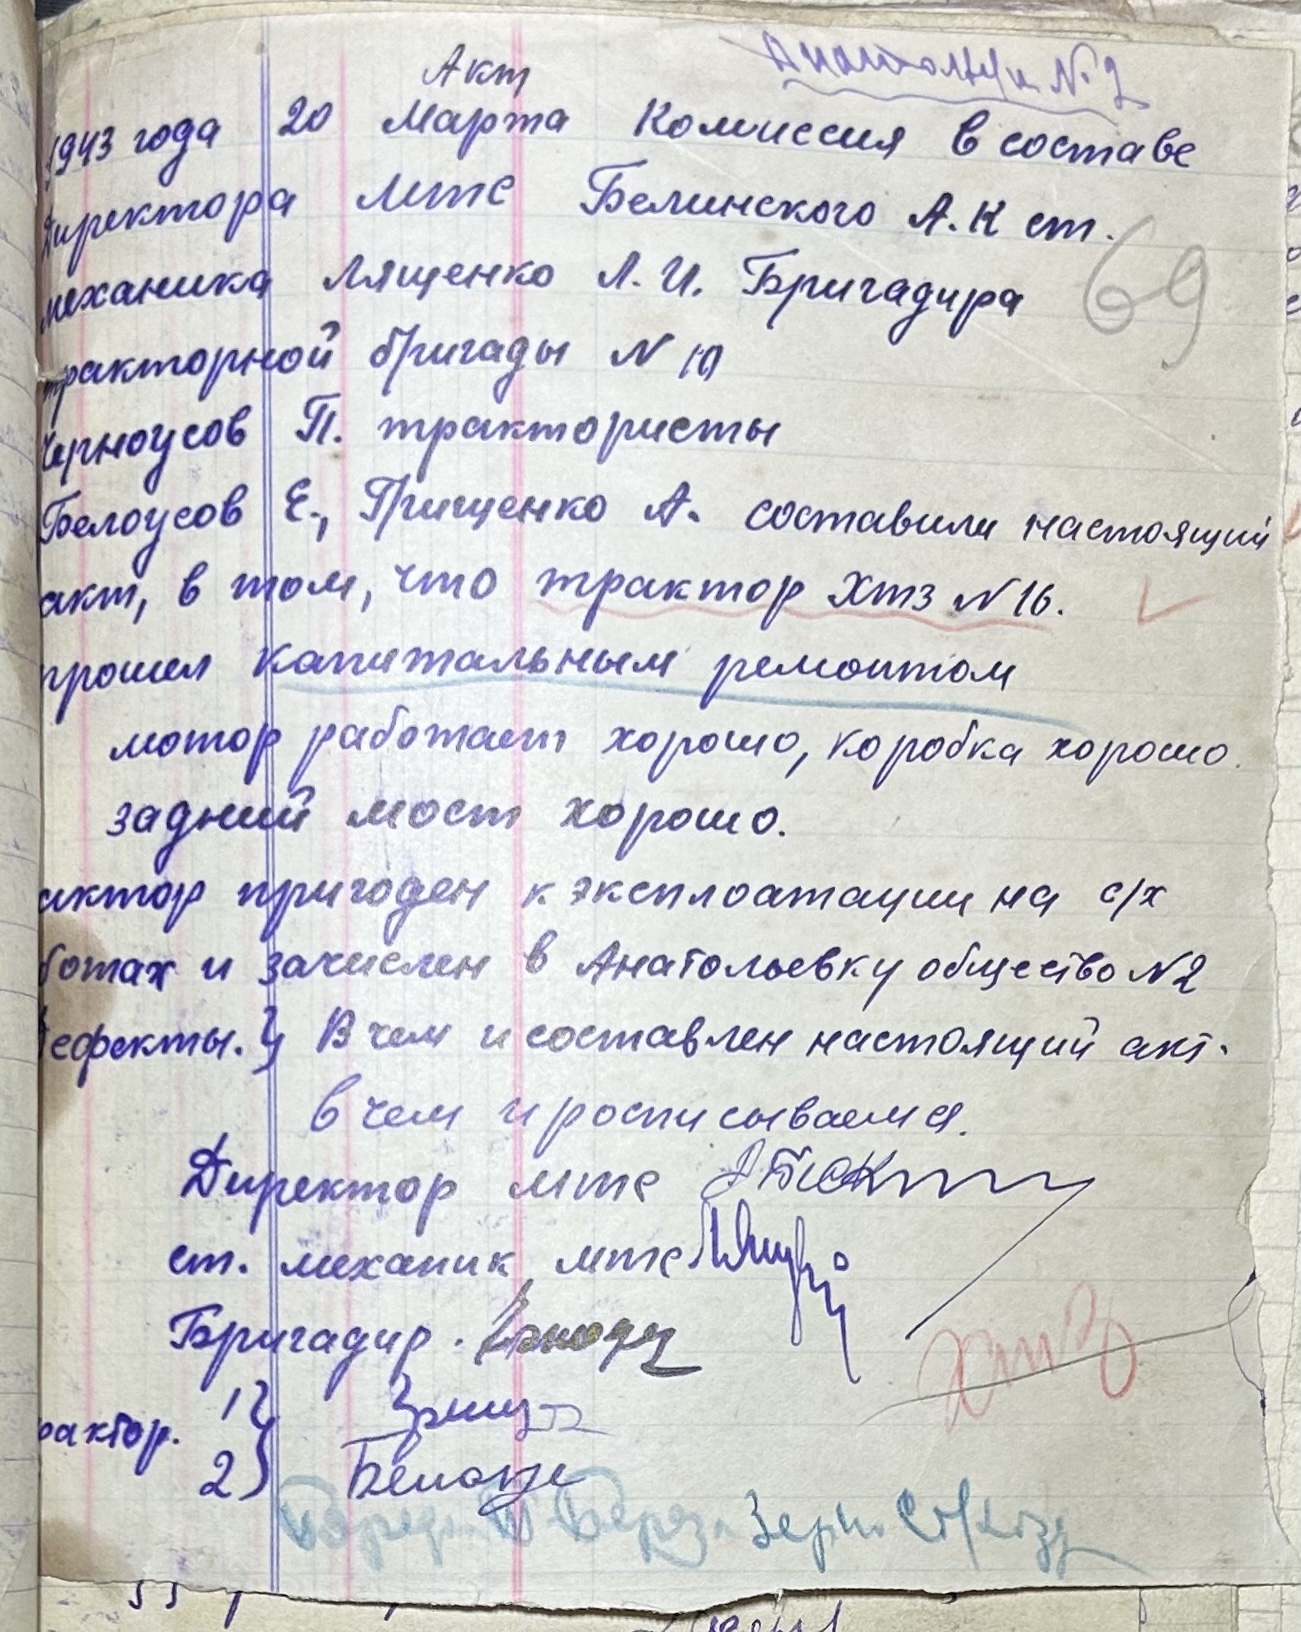 Акт
№ 2
1943 года 20 Марта Комиссия в составе
Директора МТС Белинского А.К ст.
механика Лященко Л.И. Бригадира
тракторной бригады N 10
Черноусов П. трактористы
Белоусов Е., Грищенко А. составили настоящий
акт, в том, что трактор ХТЗ N 16.
прошел капитальным ремонтом
мотор работает хорошо, коробка хорошо.
задний мост хорошо.
актор пригоден к эксплоатации на с/х
ботах и зачислен в Анатольевку общество N2
Дефекты.} В чем и составлен настоящий акт.
в чем и росписываемся.
Директор мтс
ст. механик мтс
69
Бригадир.
ХТЗ
рактор. 1}
2}